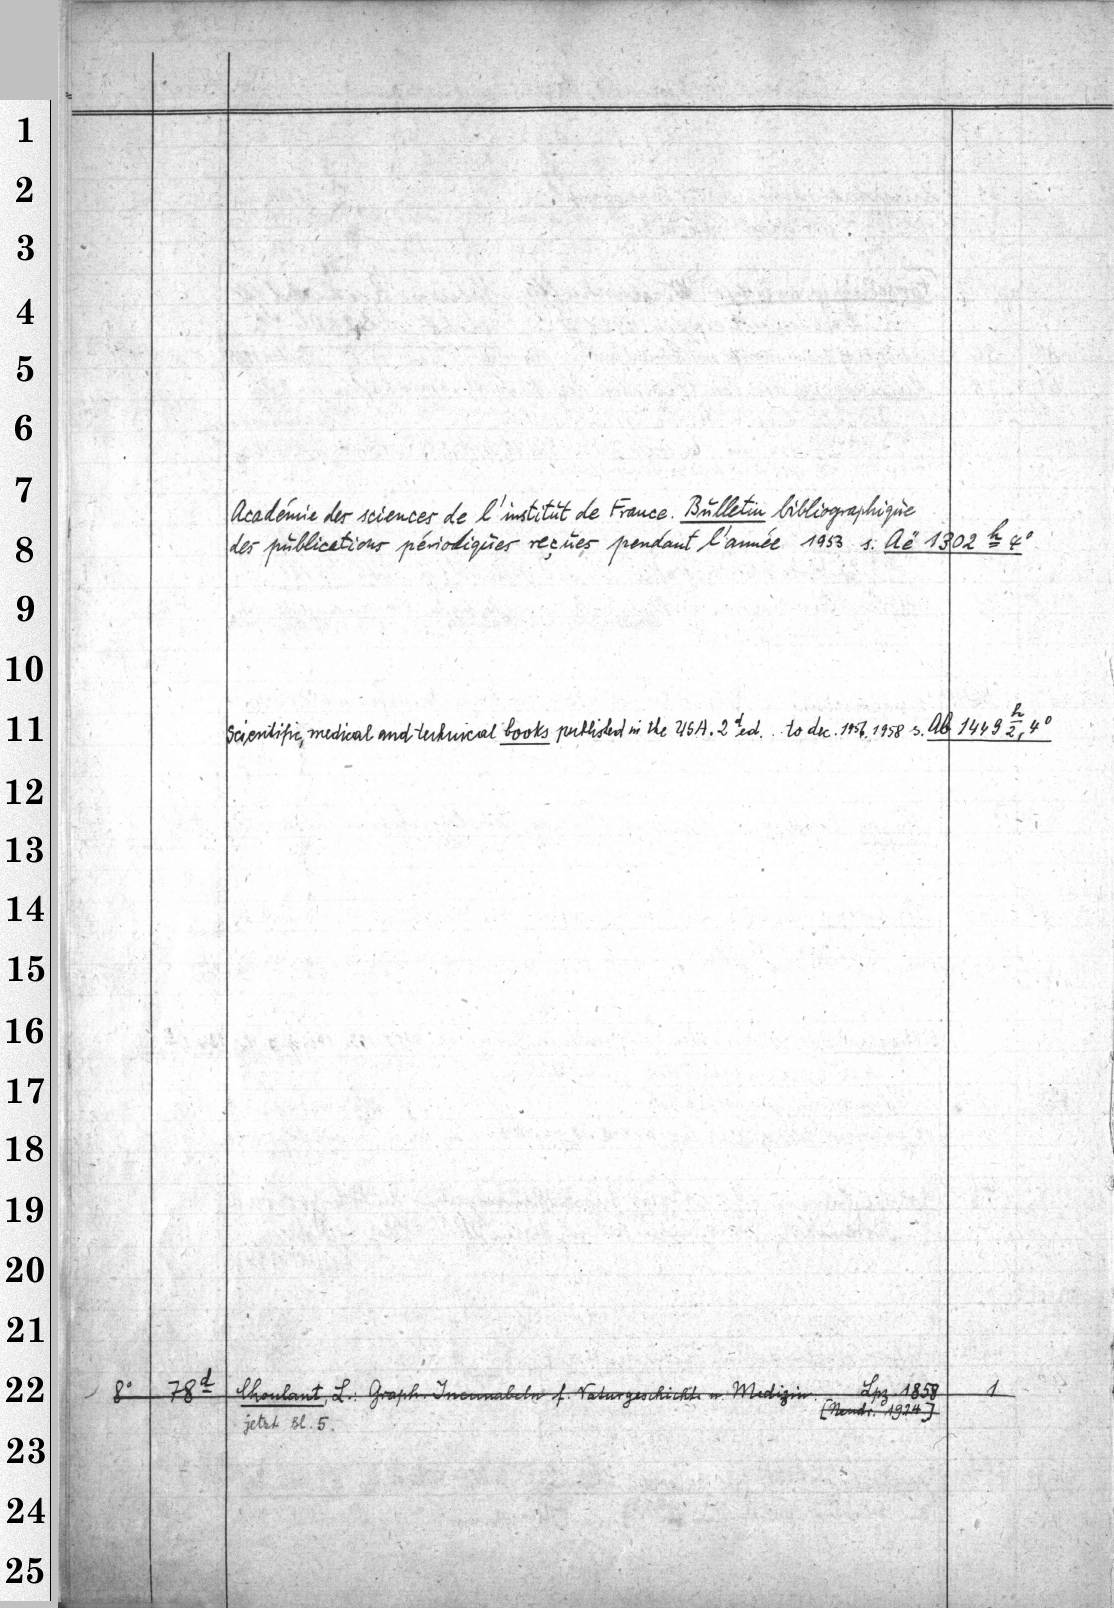 1
2
3
4
5
6
7
Académie des sciences de l'institut de France. Bulletin bibliographique
8
des publications périodiques reçues pendant l'année 1953 s. Aë 1302 h 4°
9
10
11
Scientific, medical and technical books published in the USA. 2d ed. . to dec. 1956. 1958 s. Ab 1449 h/2, 4°
12
13
14
15
16
17
18
19
20
21
22
8° 78d Choulant, L.: Graph. Incunabeln f. Naturgeschichte u. Medizin. Lpz. 1858 1
[Neudr. 1924]
jetzt Bl. 5.
23
24
25